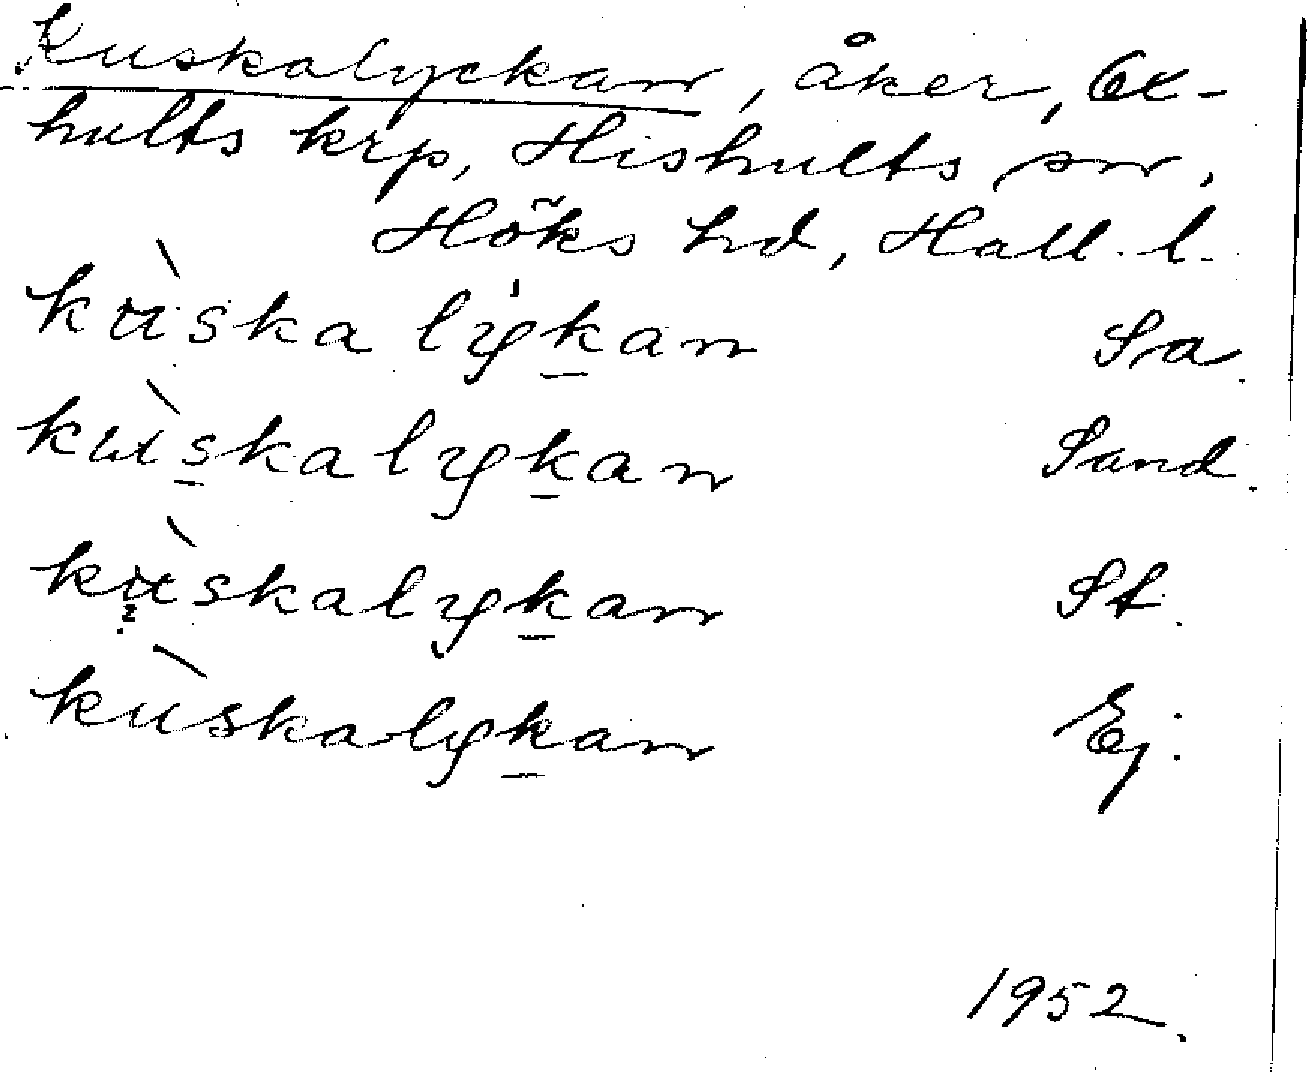 Kuskalyckan, åker, Ox-
hults krp, Hishults sn,
Höks hd, Hall. l.
kùska lýkan Sa.
kùskalykan Sand.
kùskalykan St.
kùskalykan Ej:
1952.